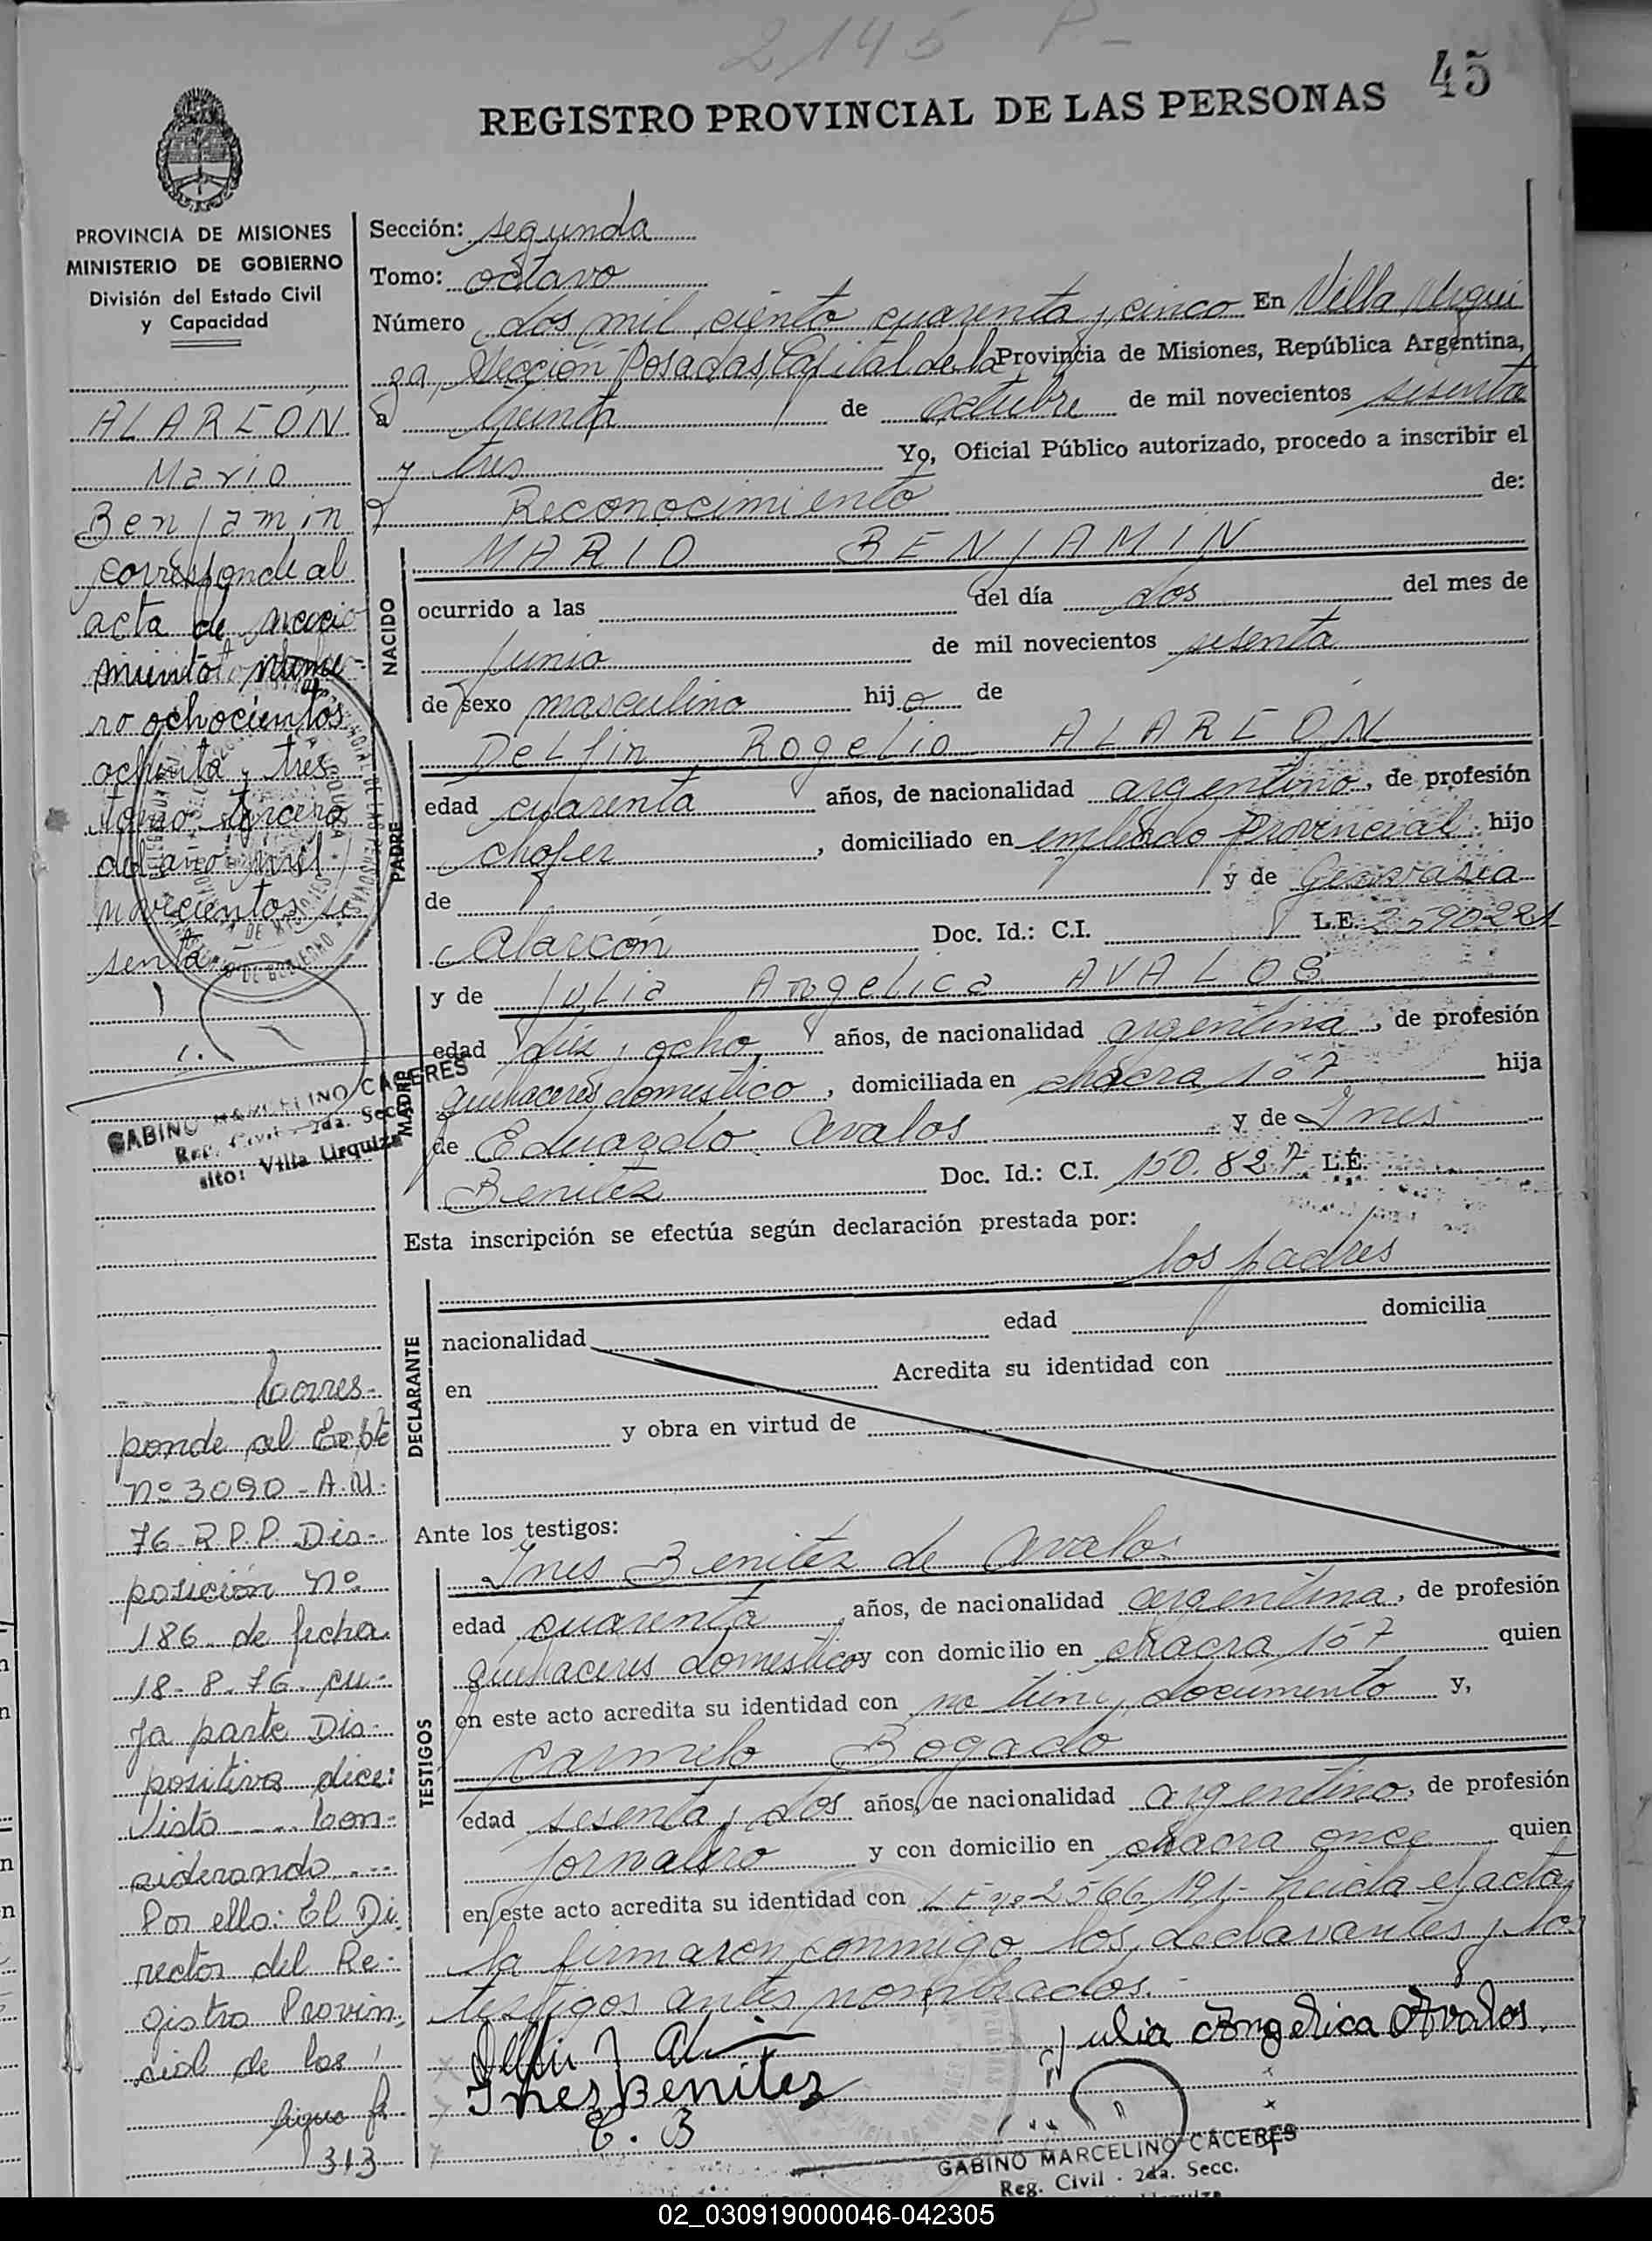 2145 P-
45
REGISTRO PROVINCIAL DE LAS PERSONAS
PROVINCIA DE MISIONES
MINISTERIO DE GOBIERNO
División del Estado Civil
y Capacidad
ALARCÓN
Mario
Benjamin
corresponde al
acta de naci
miento núme-
ro ochocientos
ochenta y tres
tomo tercero
del año mil
novecientos se
senta
GABINO MARCELINO CACERES
Reg. Civil - 2da. Secc.
sito: Villa Urquiza
Corres-
ponde al Expte
Nº 3090 - A.M.
76 - R.P.P. Dis-
posición nº
186 de fecha
18-8-76. cu-
ya parte Dis-
positiva dice:
Visto ---- Con-
siderando ---
Por ello: El Di
rector del Re-
gistro Provin
cial de las
Sigue f
313
Sección: segunda
Tomo: octavo
Número dos mil ciento cuarenta y cinco En Villa Urqui
za, Sección Posadas, Capital de la Provincia de Misiones, República Argentina,
a treinta de octubre de mil novecientos sesenta
y tres Yo, Oficial Público autorizado, procedo a inscribir el
Reconocimiento de:
NACIDO
MARIO BENJAMIN
ocurrido a las del día dos del mes de
junio de mil novecientos sesenta
de sexo masculino hijo de
PADRE
Delfin Rogelio ALARCON
edad cuarenta años, de nacionalidad argentino, de profesión
chofer, domiciliado en empleado Provincial hijo
de y de Gervasia
Alarcón Doc. Id.: C.I. L.E. 2590221
MADRE
y de Julia Angelica AVALOS
edad diez y ocho años, de nacionalidad argentina, de profesión
quehaceres domestico, domiciliada en chacra 157 hija
de Eduardo Avalos y de Ines
Benitez Doc. Id.: C.I. 150.827 L.E.
Esta inscripción se efectúa según declaración prestada por:
los padres
DECLARANTE
nacionalidad edad domicilia
en Acredita su identidad con
y obra en virtud de
Ante los testigos:
TESTIGOS
Ines Benitez de Avalos
edad cuarenta, años, de nacionalidad argentina, de profesión
quehaceres domesticos y con domicilio en chacra 157 quien
en este acto acredita su identidad con no tiene documento y,
Carmelo Bogado
edad sesenta y dos años, de nacionalidad argentino, de profesión
jornalero y con domicilio en chacra once quien
en este acto acredita su identidad con L E nº 2566191 - Leida el acta
la firmaron conmigo los declarantes y los
testigos antes nombrados.-
Julia Angelica Avalos.
Ines Benitez
C. B
GABINO MARCELINO CACERES
Reg. Civil - 2da. Secc.
02_030919000046-042305